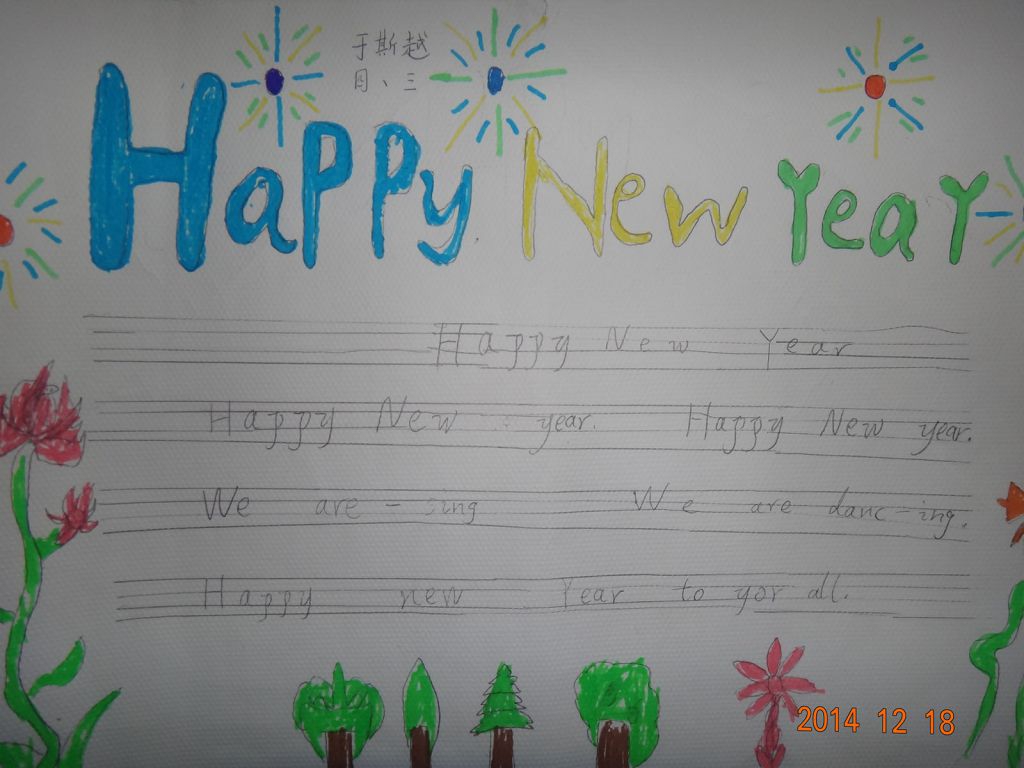 于斯越
四、三
Happy New Year
Happy New Year
Happy New year. Happy New year.
We are - sing We are danc-ing.
Happy new Year to yor all.
2014 12 18